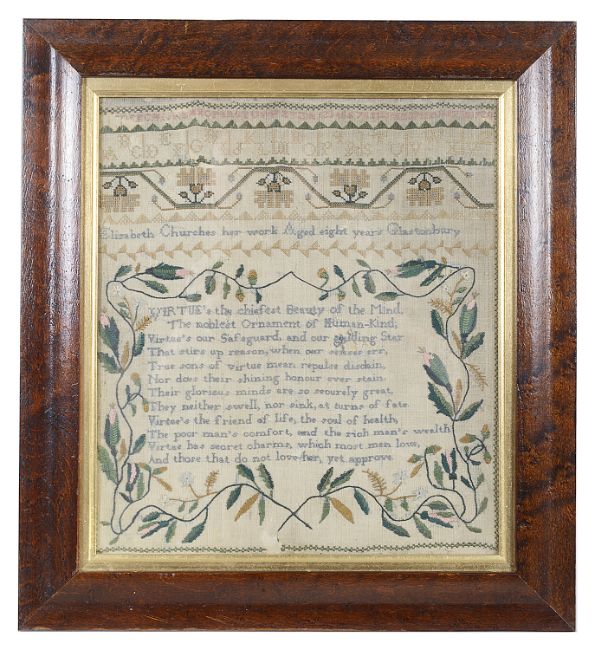 Elizabeth Churches her work Aged eight years Glastonbury
VIRTUE's the chiefest Beauty of the Mind,
The noblest Ornament of Human-Kind;
Virtue's our Safeguard, and our guiding Star
That stirs up reason, when our senses err,
True sons of virtue mean repulse disdain,
Nor does their shining honour ever stain.
Their glorious minds are so securely great,
They neither swell, nor sink, at turns of fate.
Virtue's the friend of life, the soul of health,
The poor man's comfort, and the rich man's wealth
Virtue has secret charms, which most men love,
And those that do not love her, yet approve.